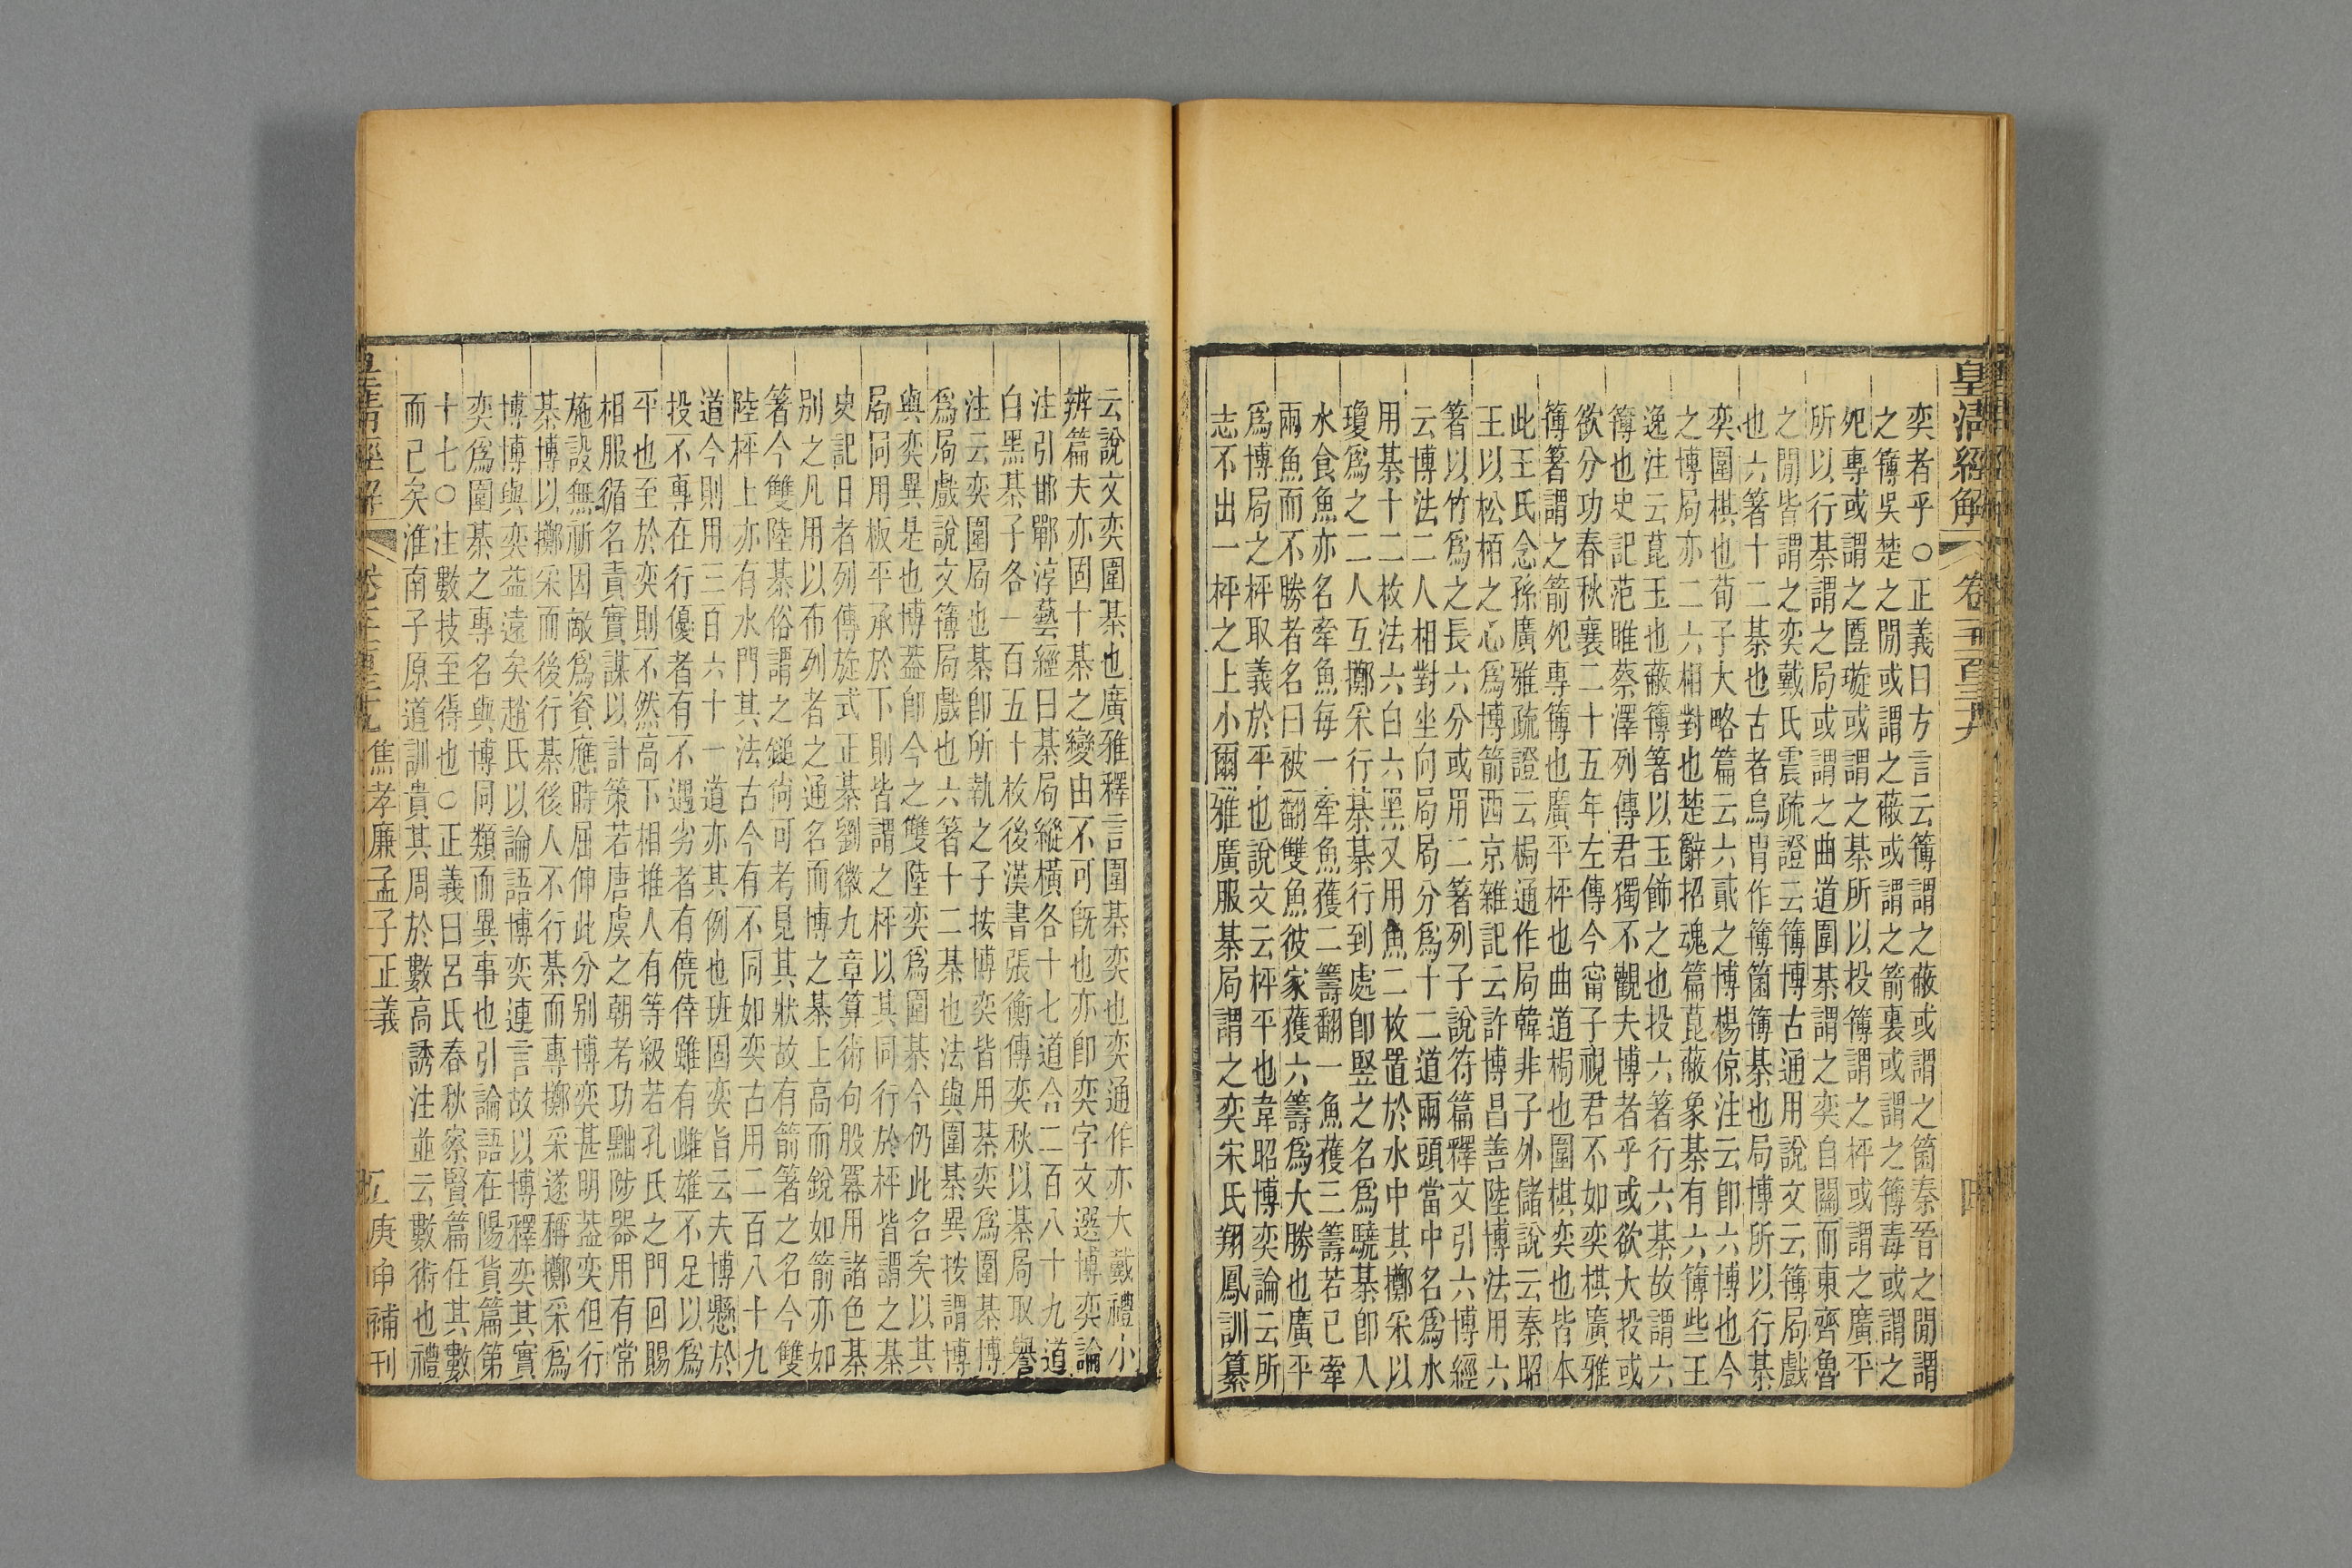 皇清經解 卷千一百三十九
奕者乎○正義曰方言云簙謂之蔽或謂之箘秦晉之閒謂
之簙吳楚之閒或謂之蔽或謂之箭裏或謂之簙毒或謂之
夗專或謂之匴璇或謂之棊所以投簙謂之枰或謂之廣平
所以行棊謂之局或謂之曲道圍棊謂之奕自關而東齊魯
之閒皆謂之奕戴氏震疏證云簙博古通用說文云簙局戲
也六箸十二棊也古者烏冑作簙箘簙棊也局博所以行棊
奕圍棋也荀子大略篇云六貳之博楊倞注云卽六博也今
之博局亦二六相對也楚辭招魂篇菎蔽象棊有六簙些王
逸注云菎玉也蔽簙箸以玉飾之也投六箸行六棊故謂六
簙也史記范睢蔡澤列傳君獨不觀夫博者乎或欲大投或
欲分功春秋襄二十五年左傳今甯子視君不如奕棋廣雅
簙箸謂之箭夗專簙也廣平枰也曲道梮也圍棋奕也皆本
此王氏念孫廣雅疏證云梮通作局韓非子外儲說云秦昭
王以松栢之心爲博箭西京雜記云許博昌善陸博法用六
箸以竹爲之長六分或用二箸列子說符篇釋文引六博經
云博法二人相對坐向局局分爲十二道兩頭當中名爲水
用棊十二枚法六白六黑又用魚二枚置於水中其擲采以
瓊爲之二人互擲采行棊棊行到處卽豎之名爲驍棊卽入
水食魚亦名牽魚每一牽魚獲二籌翻一魚獲三籌若已牽
兩魚而不勝者名曰被翻雙魚彼家獲六籌爲大勝也廣平
爲博局之枰取義於平也說文云枰平也韋昭博奕論云所
志不出一枰之上小爾雅廣服棊局謂之奕宋氏翔鳳訓纂
云說文奕圍棊也廣雅釋言圍棊奕也奕通作亦大戴禮小
辨篇夫亦固十棊之變由不可旣也亦卽奕字文選博奕論
注引邯鄲淳藝經曰棊局縱橫各十七道合二百八十九道
白黑棊子各一百五十枚後漢書張衡傳奕秋以棊局取譽
注云奕圍局也棊卽所執之子按博奕皆用棊奕爲圍棊博
爲局戲說文簙局戲也六箸十二棊也法與圍棊異按謂博
與奕異是也博葢卽今之雙陸奕爲圍棊今仍此名矣以其
局同用板平承於下則皆謂之枰以其同行於枰皆謂之棊
史記日者列傳旋式正棊劉徽九章算術句股冪用諸色棊
別之凡用以布列者之通名而博之棊上高而銳如箭亦如
箸今雙陸棊俗謂之鎚尙可考見其狀故有箭箸之名今雙
陸枰上亦有水門其法古今有不同如奕古用二百八十九
道今則用三百六十一道亦其例也班固奕旨云夫博懸於
投不專在行優者有不遇劣者有僥倖雖有雌雄不足以爲
平也至於奕則不然高下相推人有等級若孔氏之門回賜
相服循名責實謀以計策若唐虞之朝考功黜陟器用有常
施設無祈因敵爲資應時屈伸此分別博奕甚明葢奕但行
棊博以擲采而後行棊後人不行棊而專擲采遂稱擲采爲
博博與奕葢遠矣趙氏以論語博奕連言故以博釋奕其實
奕爲圍棊之專名與博同類而異事也引論語在陽貨篇第
十七○注數技至得也○正義曰呂氏春秋察賢篇任其數
而已矣淮南子原道訓貴其周於數高誘注並云數術也禮
皇清經解 焦孝廉孟子正義 五 庚申補刊